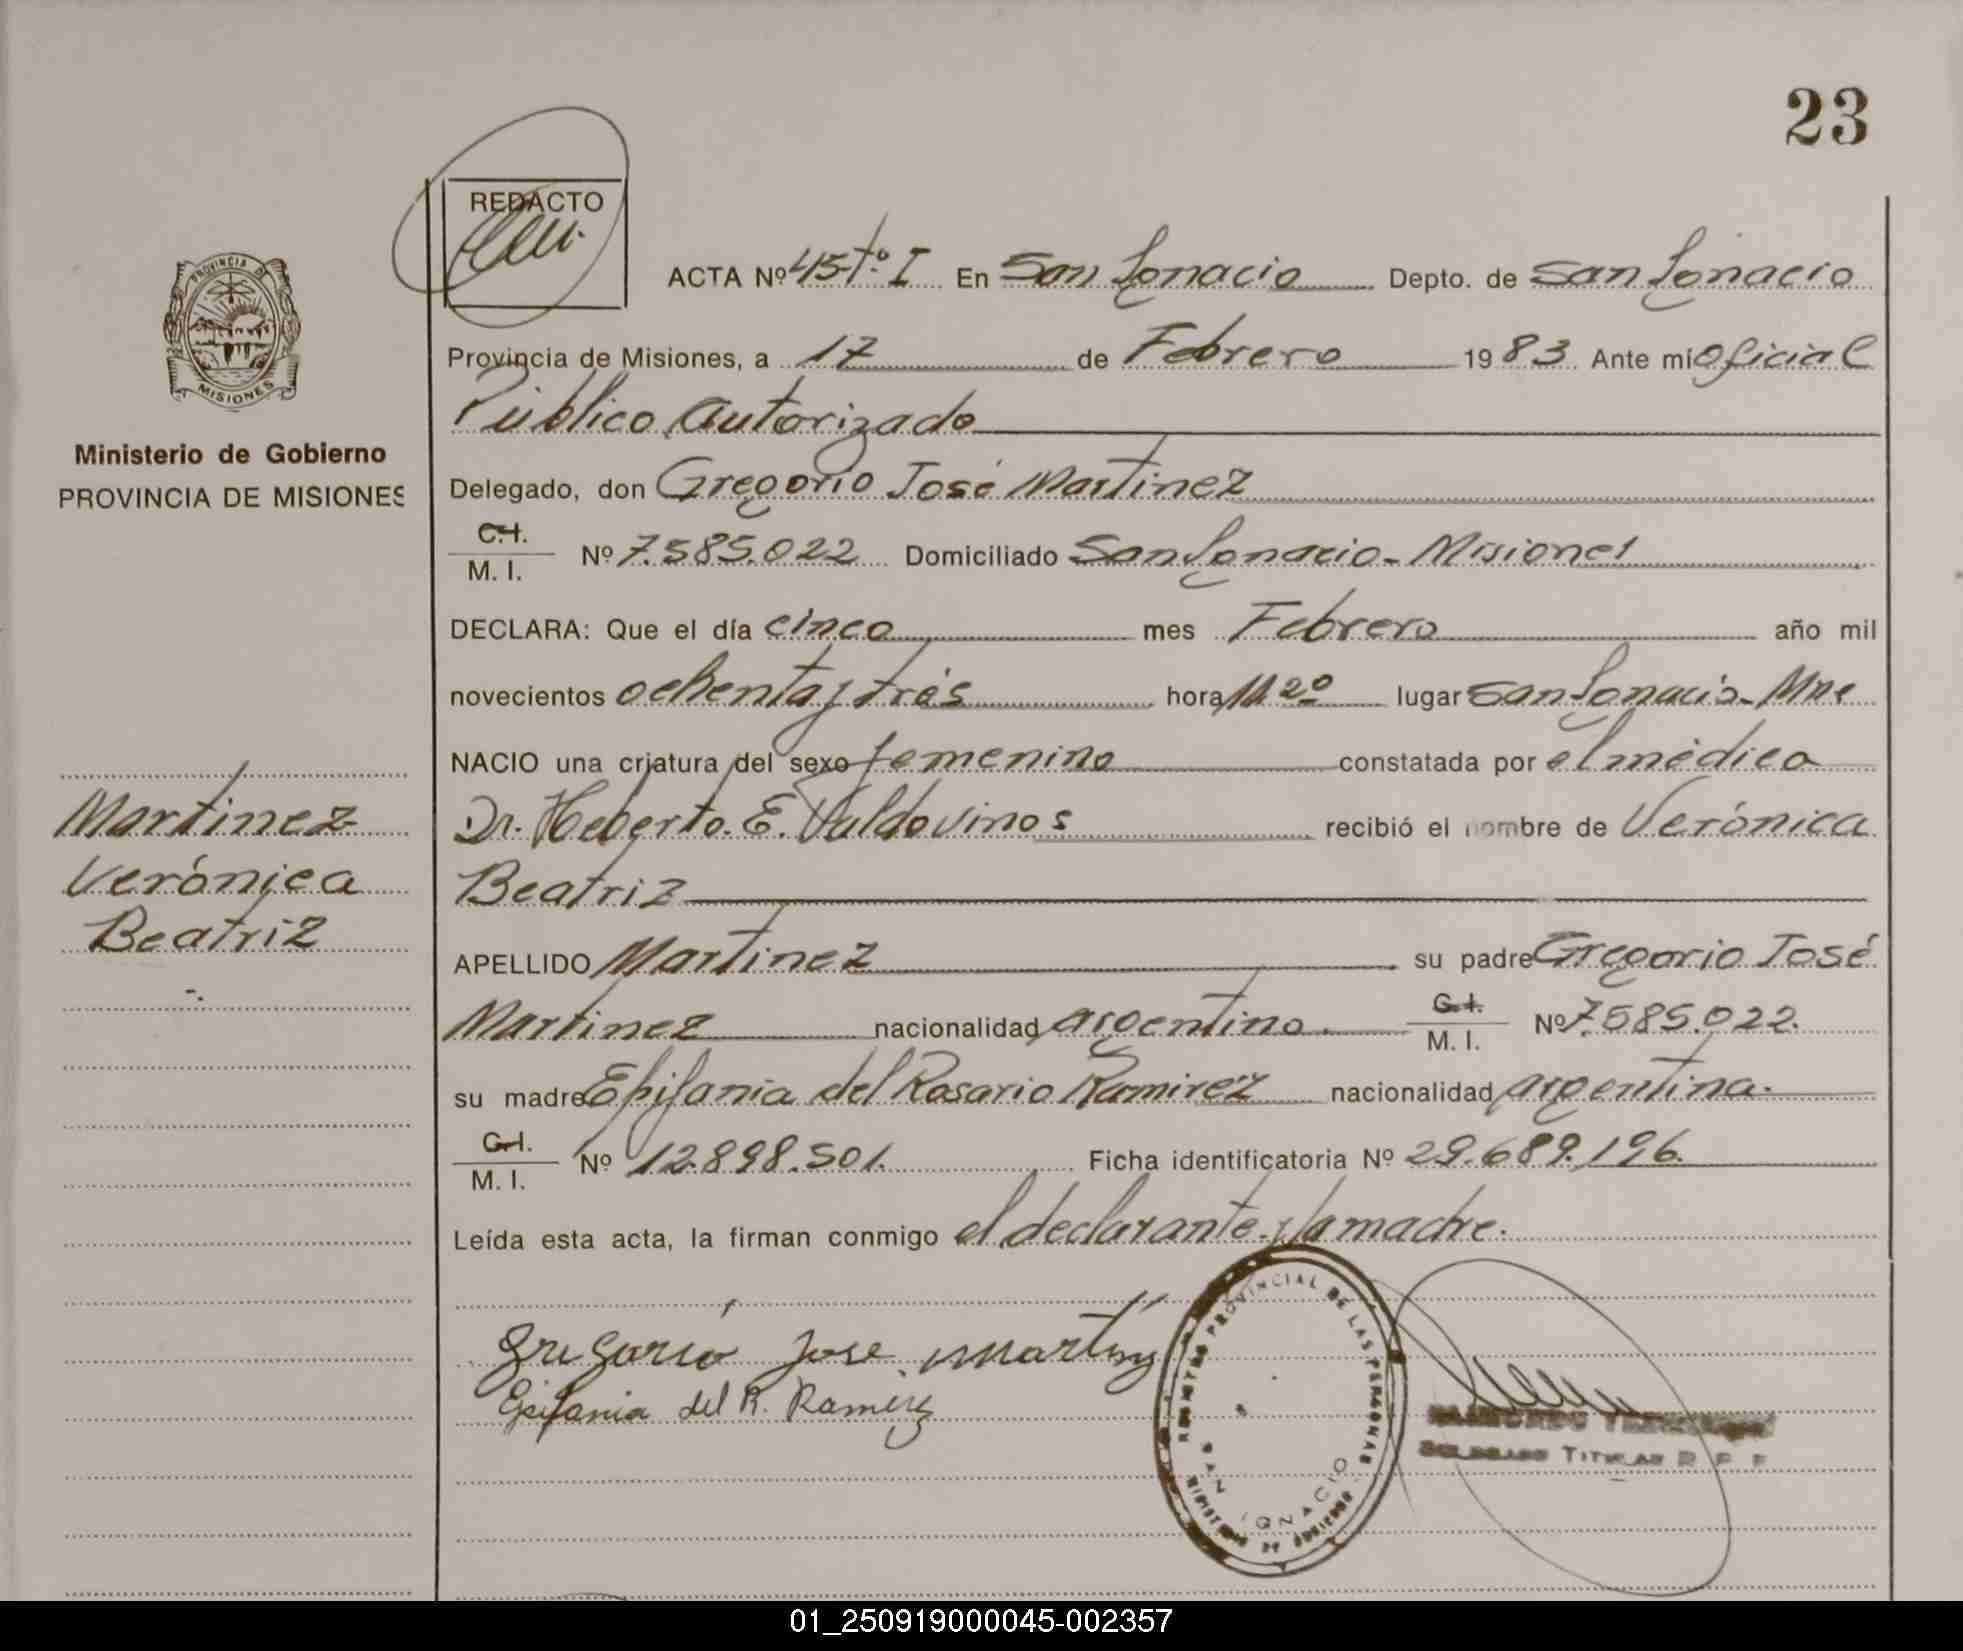 23
REDACTO
ACTA Nº 45-tº I En San Ignacio Depto. de San Ignacio
Provincia de Misiones, a 17 de Febrero 1983. Ante mí Oficial
Público Autorizado
Delegado, don Gregorio José Martinez
C.I. / M. I. Nº 7.585.022 Domiciliado San Ignacio - Misiones
DECLARA: Que el día cinco mes Febrero año mil
novecientos ochenta y trés hora 11 20 lugar San Ignacio - Mnes
NACIO una criatura del sexo femenino constatada por el médico
Dr. Heberto. E. Valdovinos recibió el nombre de Verónica
Beatriz
APELLIDO Martinez su padre Gregorio José
Martinez nacionalidad argentino. C.I. / M. I. Nº 7.585.022.
su madre Epifania del Rosario Ramirez nacionalidad argentina.
C.I. / M. I. Nº 12.898.501. Ficha identificatoria Nº 29.689.196.
Leída esta acta, la firman conmigo el declarante y la madre.
Gregorio Jose Martinez
Epifania del R. Ramirez
REGISTRO PROVINCIAL DE LAS PERSONAS
SAN IGNACIO
MINISTERIO DE GOBIERNO
DELEGADO TITULAR R. P. P.
PROVINCIA DE
MISIONES
Ministerio de Gobierno
PROVINCIA DE MISIONES
Martinez
Verónica
Beatriz
01_250919000045-002357